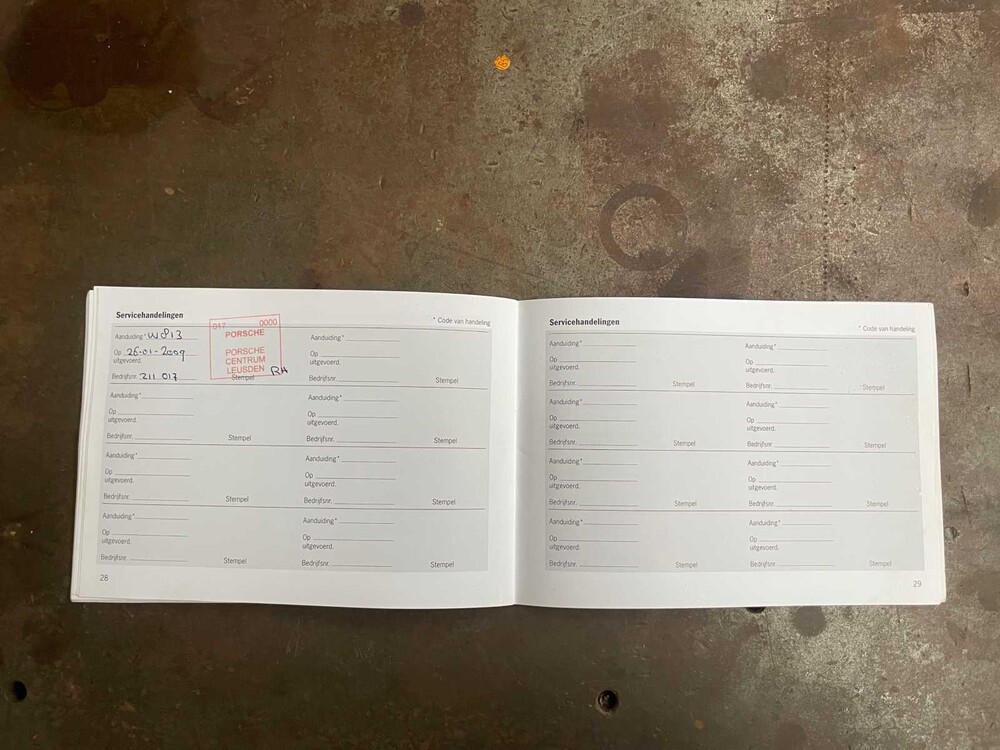 Servicehandelingen
* Code van handeling
Aanduiding* W813
Op 26-01-2009
uitgevoerd.
Bedrijfsnr. 211 017
Stempel
017 0000
PORSCHE
PORSCHE
CENTRUM
LEUSDEN
RH
Aanduiding*
Op
uitgevoerd.
Bedrijfsnr. Stempel
Aanduiding*
Op
uitgevoerd.
Bedrijfsnr. Stempel
Aanduiding*
Op
uitgevoerd.
Bedrijfsnr. Stempel
Aanduiding*
Op
uitgevoerd.
Bedrijfsnr. Stempel
Aanduiding*
Op
uitgevoerd.
Bedrijfsnr. Stempel
Aanduiding*
Op
uitgevoerd.
Bedrijfsnr. Stempel
Aanduiding*
Op
uitgevoerd.
Bedrijfsnr. Stempel
28
Servicehandelingen
* Code van handeling
Aanduiding*
Op
uitgevoerd.
Bedrijfsnr. Stempel
Aanduiding*
Op
uitgevoerd.
Bedrijfsnr. Stempel
Aanduiding*
Op
uitgevoerd.
Bedrijfsnr. Stempel
Aanduiding*
Op
uitgevoerd.
Bedrijfsnr. Stempel
Aanduiding*
Op
uitgevoerd.
Bedrijfsnr. Stempel
Aanduiding*
Op
uitgevoerd.
Bedrijfsnr. Stempel
Aanduiding*
Op
uitgevoerd.
Bedrijfsnr. Stempel
Aanduiding*
Op
uitgevoerd.
Bedrijfsnr. Stempel
29